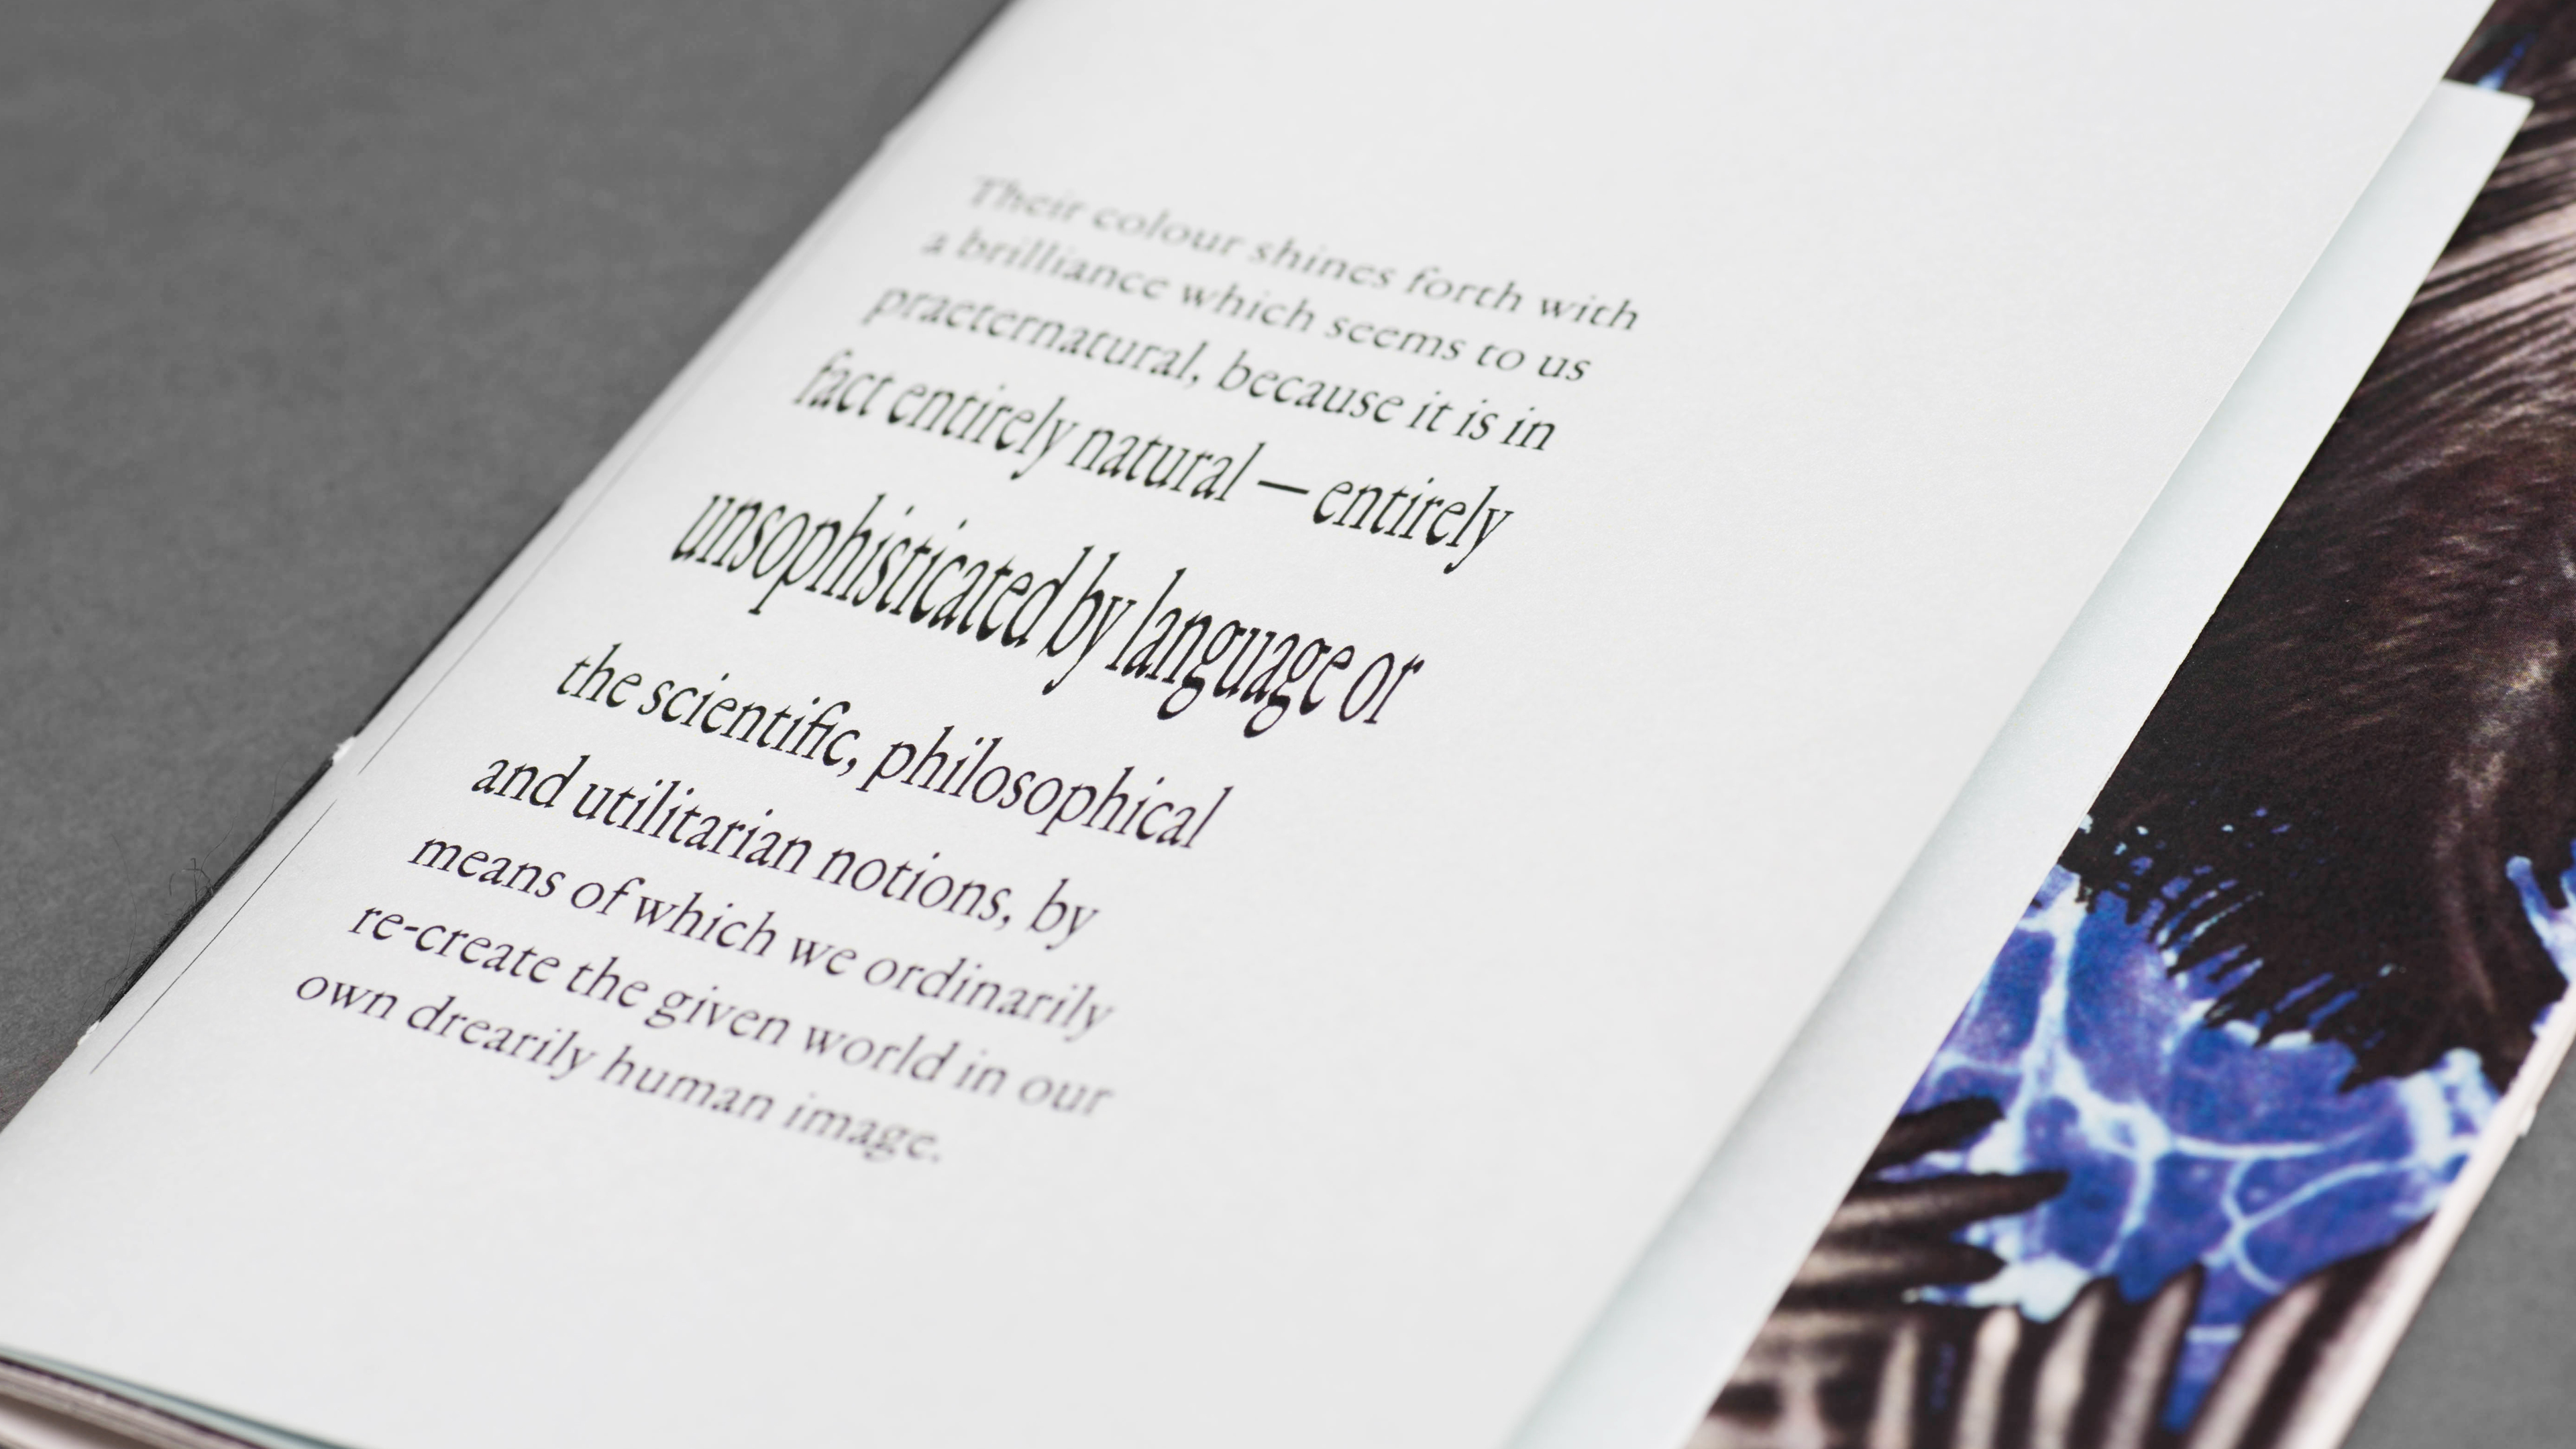 Their colour shines forth with
a brilliance which seems to us
praeternatural, because it is in
fact entirely natural — entirely
unsophisticated by language or
the scientific, philosophical
and utilitarian notions, by
means of which we ordinarily
re-create the given world in our
own drearily human image.